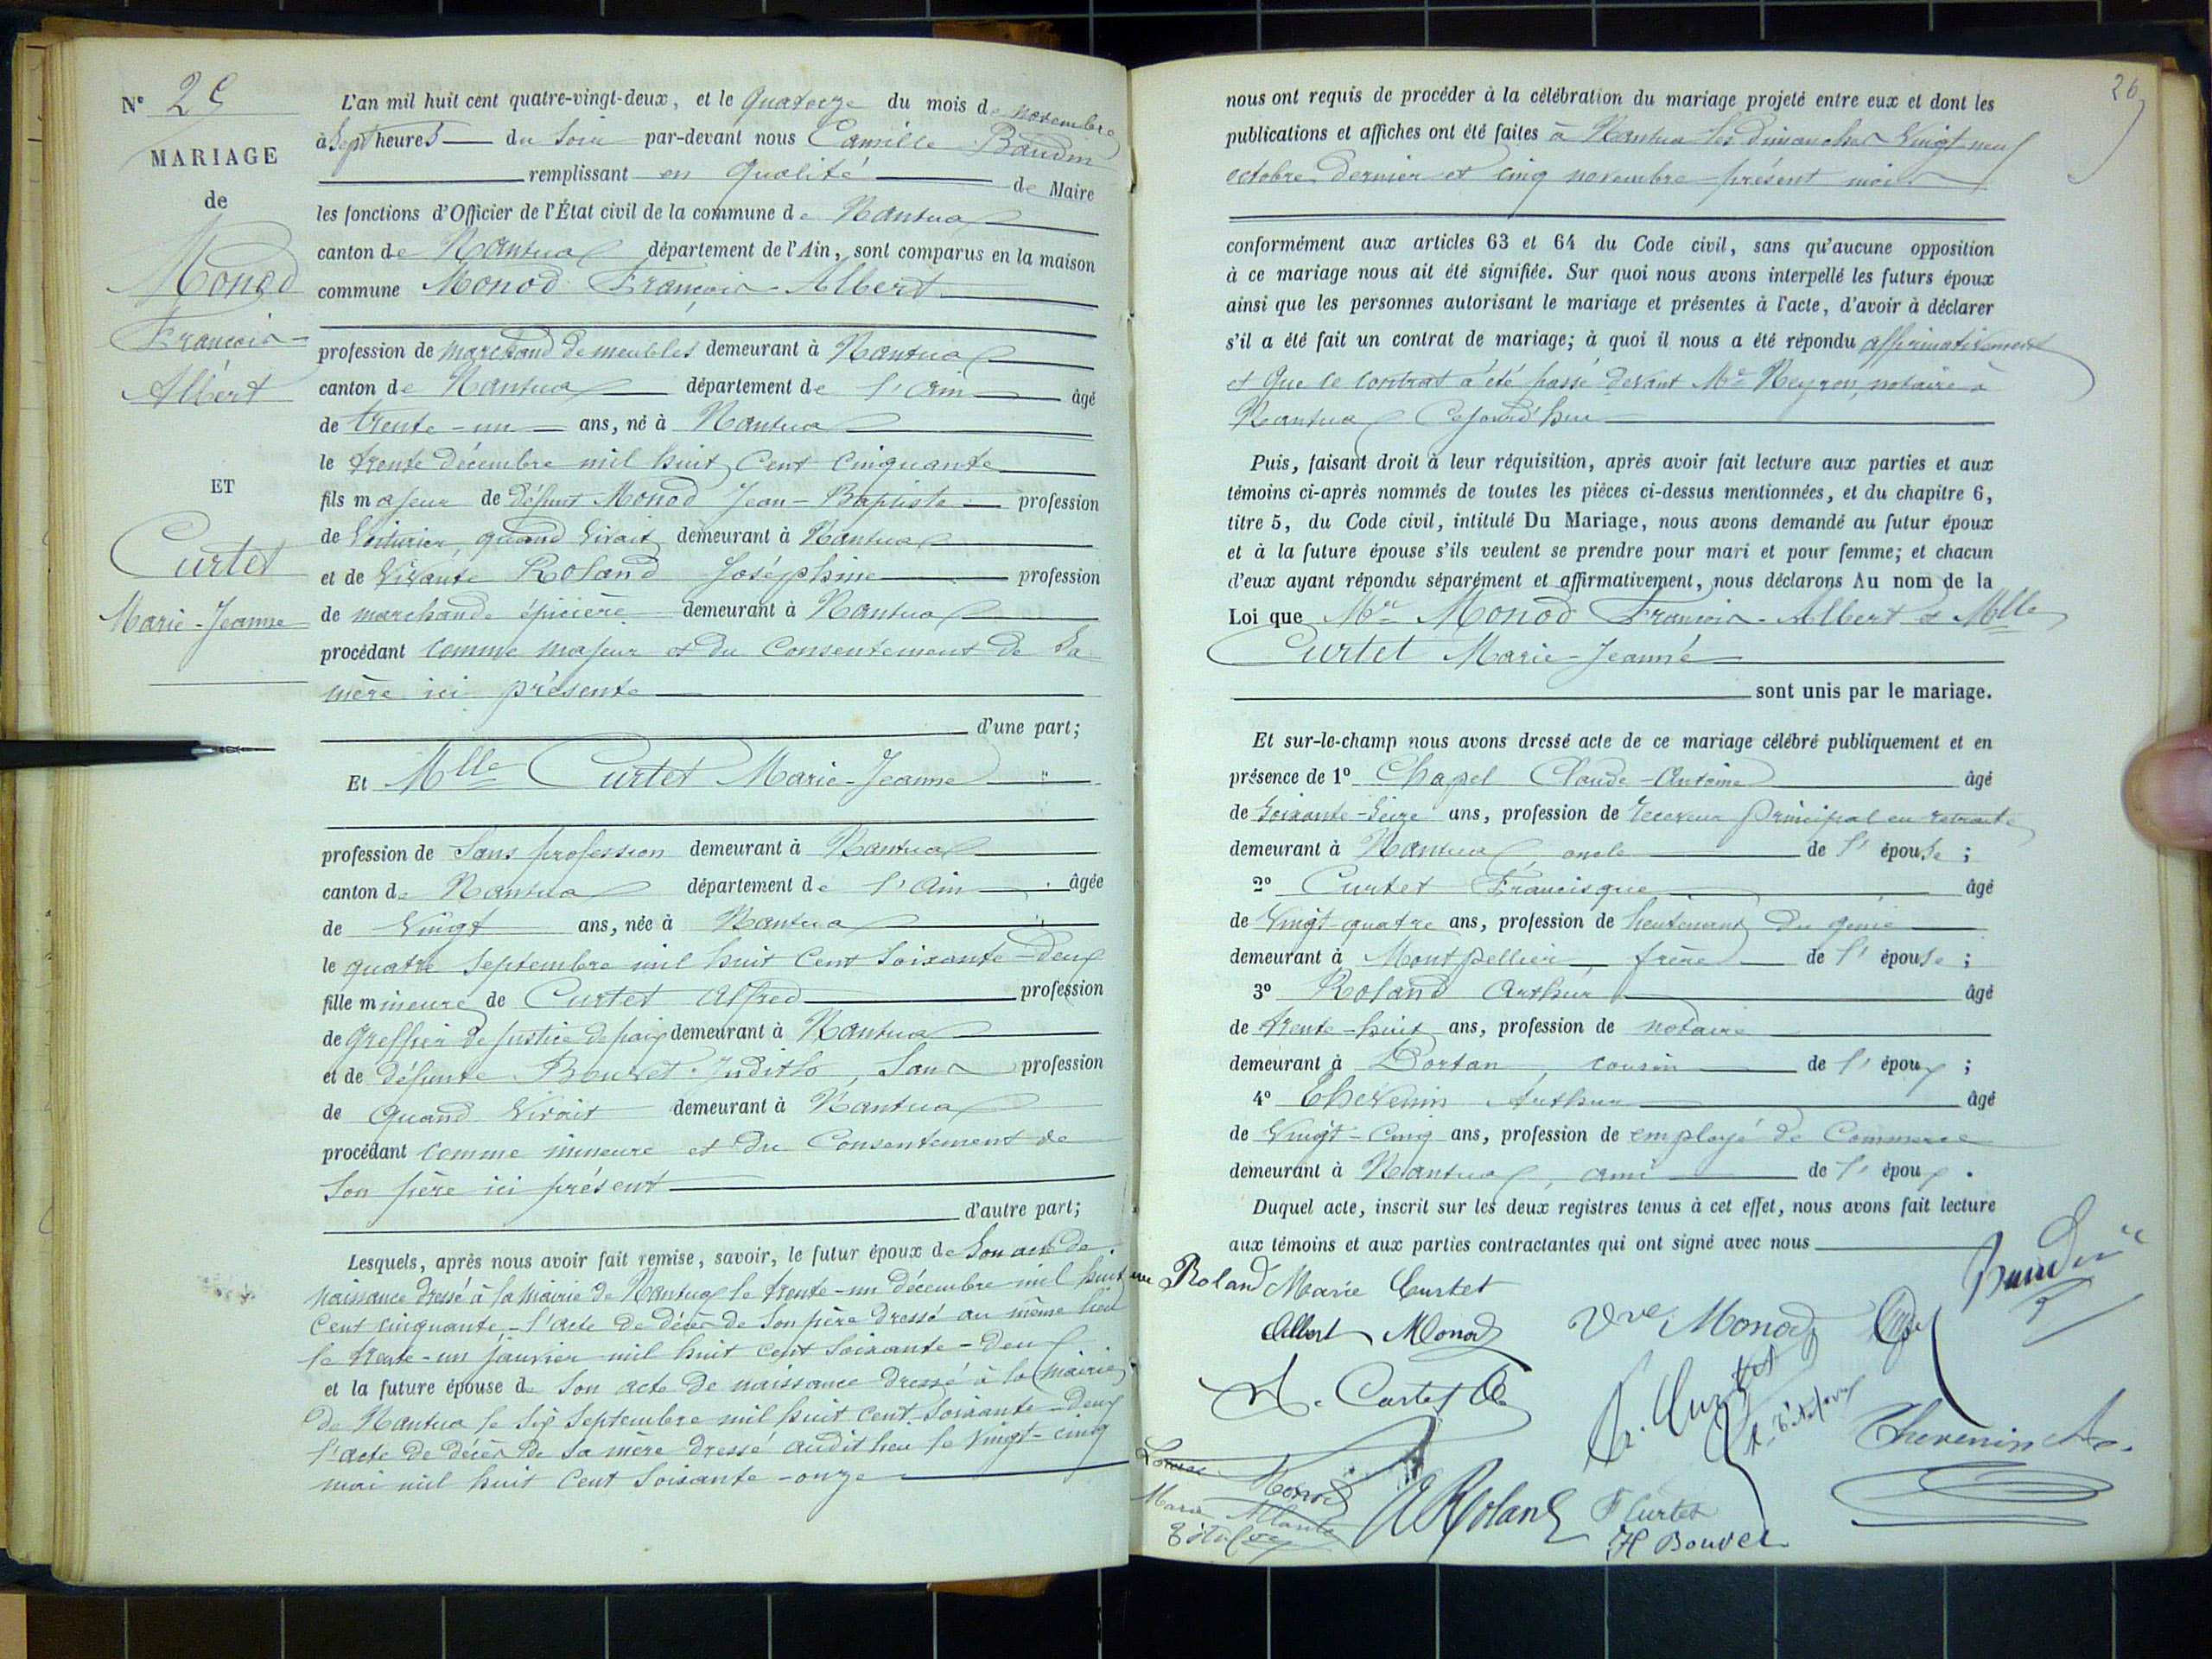 N° 25
MARIAGE
de
Monod
François-
Albert
ET
Curtet
Marie-Jeanne
L'an mil huit cent quatre-vingt-deux, et le quatorze du mois de novembre
à sept heures du soir par-devant nous Camille Baudin
remplissant en qualité de Maire
les fonctions d'Officier de l'État civil de la commune de Nantua
canton de Nantua département de l'Ain, sont comparus en la maison
commune Monod François-Albert
profession de marchand de meubles demeurant à Nantua
canton de Nantua département de l'Ain âgé
de trente-un ans, né à Nantua
le trente décembre mil huit cent cinquante
fils majeur de défunt Monod Jean-Baptiste profession
de Voiturier, quand vivait demeurant à Nantua
et de vivante Roland Joséphine profession
de marchande épicière demeurant à Nantua
procédant comme majeur et du consentement de sa
mère ici présente
d'une part;
Et Mlle Curtet Marie-Jeanne "
profession de sans profession demeurant à Nantua
canton de Nantua département de l'Ain âgée
de vingt ans, née à Nantua
le quatre septembre mil huit cent soixante-deux
fille mineure de Curtet Alfred profession
de greffier de justice de paix demeurant à Nantua
et de défunte Bouvet Judith, sans profession
de quand vivait demeurant à Nantua
procédant comme mineure et du consentement de
son père ici présent
d'autre part;
Lesquels, après nous avoir fait remise, savoir, le futur époux de son acte de
naissance dressé à la mairie de Nantua le trente-un décembre mil huit
cent cinquante, l'acte de décès de son père dressé au même lieu
le trente-un janvier mil huit cent soixante-deux
et la future épouse de son acte de naissance dressé à la mairie
de Nantua le six septembre mil huit cent soixante-deux
l'acte de décès de sa mère dressé audit lieu le vingt-cinq
mai mil huit cent soixante-onze
26
nous ont requis de procéder à la célébration du mariage projeté entre eux et dont les
publications et affiches ont été faites à Nantua les dimanches vingt-neuf
octobre dernier et cinq novembre présent mois
conformément aux articles 63 et 64 du Code civil, sans qu'aucune opposition
à ce mariage nous ait été signifiée. Sur quoi nous avons interpellé les futurs époux
ainsi que les personnes autorisant le mariage et présentes à l'acte, d'avoir à déclarer
s'il a été fait un contrat de mariage; à quoi il nous a été répondu affirmativement
et que ce contrat a été passé devant Me Reyron, notaire à
Nantua cejourd'hui
Puis, faisant droit à leur réquisition, après avoir fait lecture aux parties et aux
témoins ci-après nommés de toutes les pièces ci-dessus mentionnées, et du chapitre 6,
titre 5, du Code civil, intitulé Du Mariage, nous avons demandé au futur époux
et à la future épouse s'ils veulent se prendre pour mari et pour femme; et chacun
d'eux ayant répondu séparément et affirmativement, nous déclarons Au nom de la
Loi que Mr Monod François-Albert & Mlle
Curtet Marie-Jeanne
sont unis par le mariage.
Et sur-le-champ nous avons dressé acte de ce mariage célébré publiquement et en
présence de 1° Chapel Claude-Antoine âgé
de soixante-seize ans, profession de receveur principal en retraite
demeurant à Nantua, oncle de l'épouse;
2° Curtet Francisque âgé
de vingt-quatre ans, profession de lieutenant du génie
demeurant à Montpellier, frère de l'épouse;
3° Roland Arthur âgé
de trente-huit ans, profession de notaire
demeurant à Dortan, cousin de l'époux;
4° Thevenin Arthur âgé
de vingt-cinq ans, profession de employé de commerce
demeurant à Nantua, ami de l'époux.
Duquel acte, inscrit sur les deux registres tenus à cet effet, nous avons fait lecture
aux témoins et aux parties contractantes qui ont signé avec nous
Roland Marie Curtet
Baudin
Albert Monod
Vve Monod
A. Curtet
Curtet
Thevenin
Louise Monod
Roland
F Curtet
H Bouvet